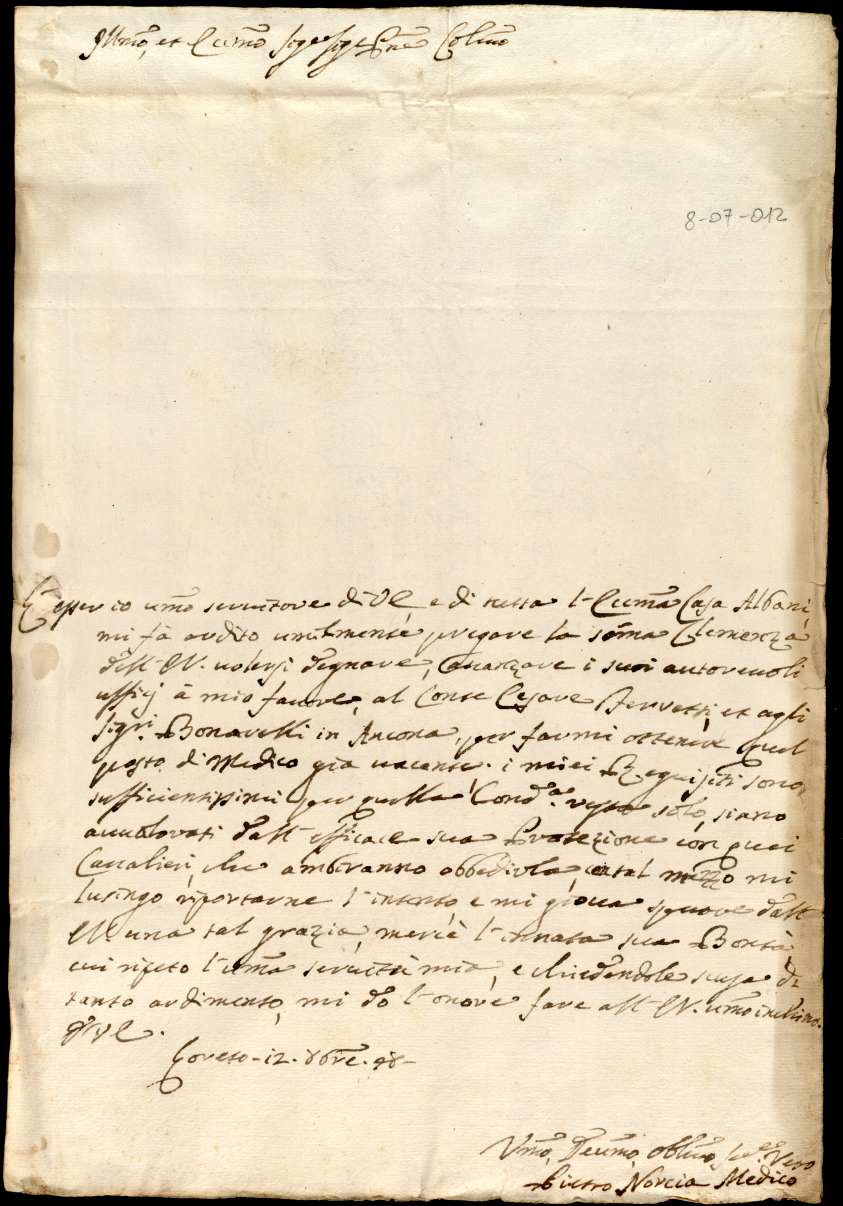 Illmo, et Eccmo Sigre Sigre Prne Colmo
8-07-012
E esser io umo servitore di VE, e di tutta l'Eccma Casa Albani,
mi fà ardito umilmente pregare la somma Clemenza
dell' EV. volersi degnare, avanzare i suoi autorevoli
ufficij à mio favore, al Conte Cesare Ferretti, et agli
Sigri Bonarelli in Ancona, per farmi ottenere quel
posto di Medico già vacante. i miei Requisiti sono
sufficientissimi per quella Condta, resta solo, siano
avvalorati dall' efficace sua Protezione con quei
Cavalieri, che ambiranno obbedirla, con tal mezzo mi
lusingo riportarne l'intento, e mi giova sperare dall'
EV. una tal grazia, mercè l'innata sua Bontà,
cui ripeto l'uma servitù mia, e chiedendole scusa di
tanto ardimento, mi dò l'onore fare all' EV. umo inchino.
D VE.
Loreto - 12. 8bre. 48 -
Umo, Devmo, Obblmo Servre Vero
Pietro Norcia Medico